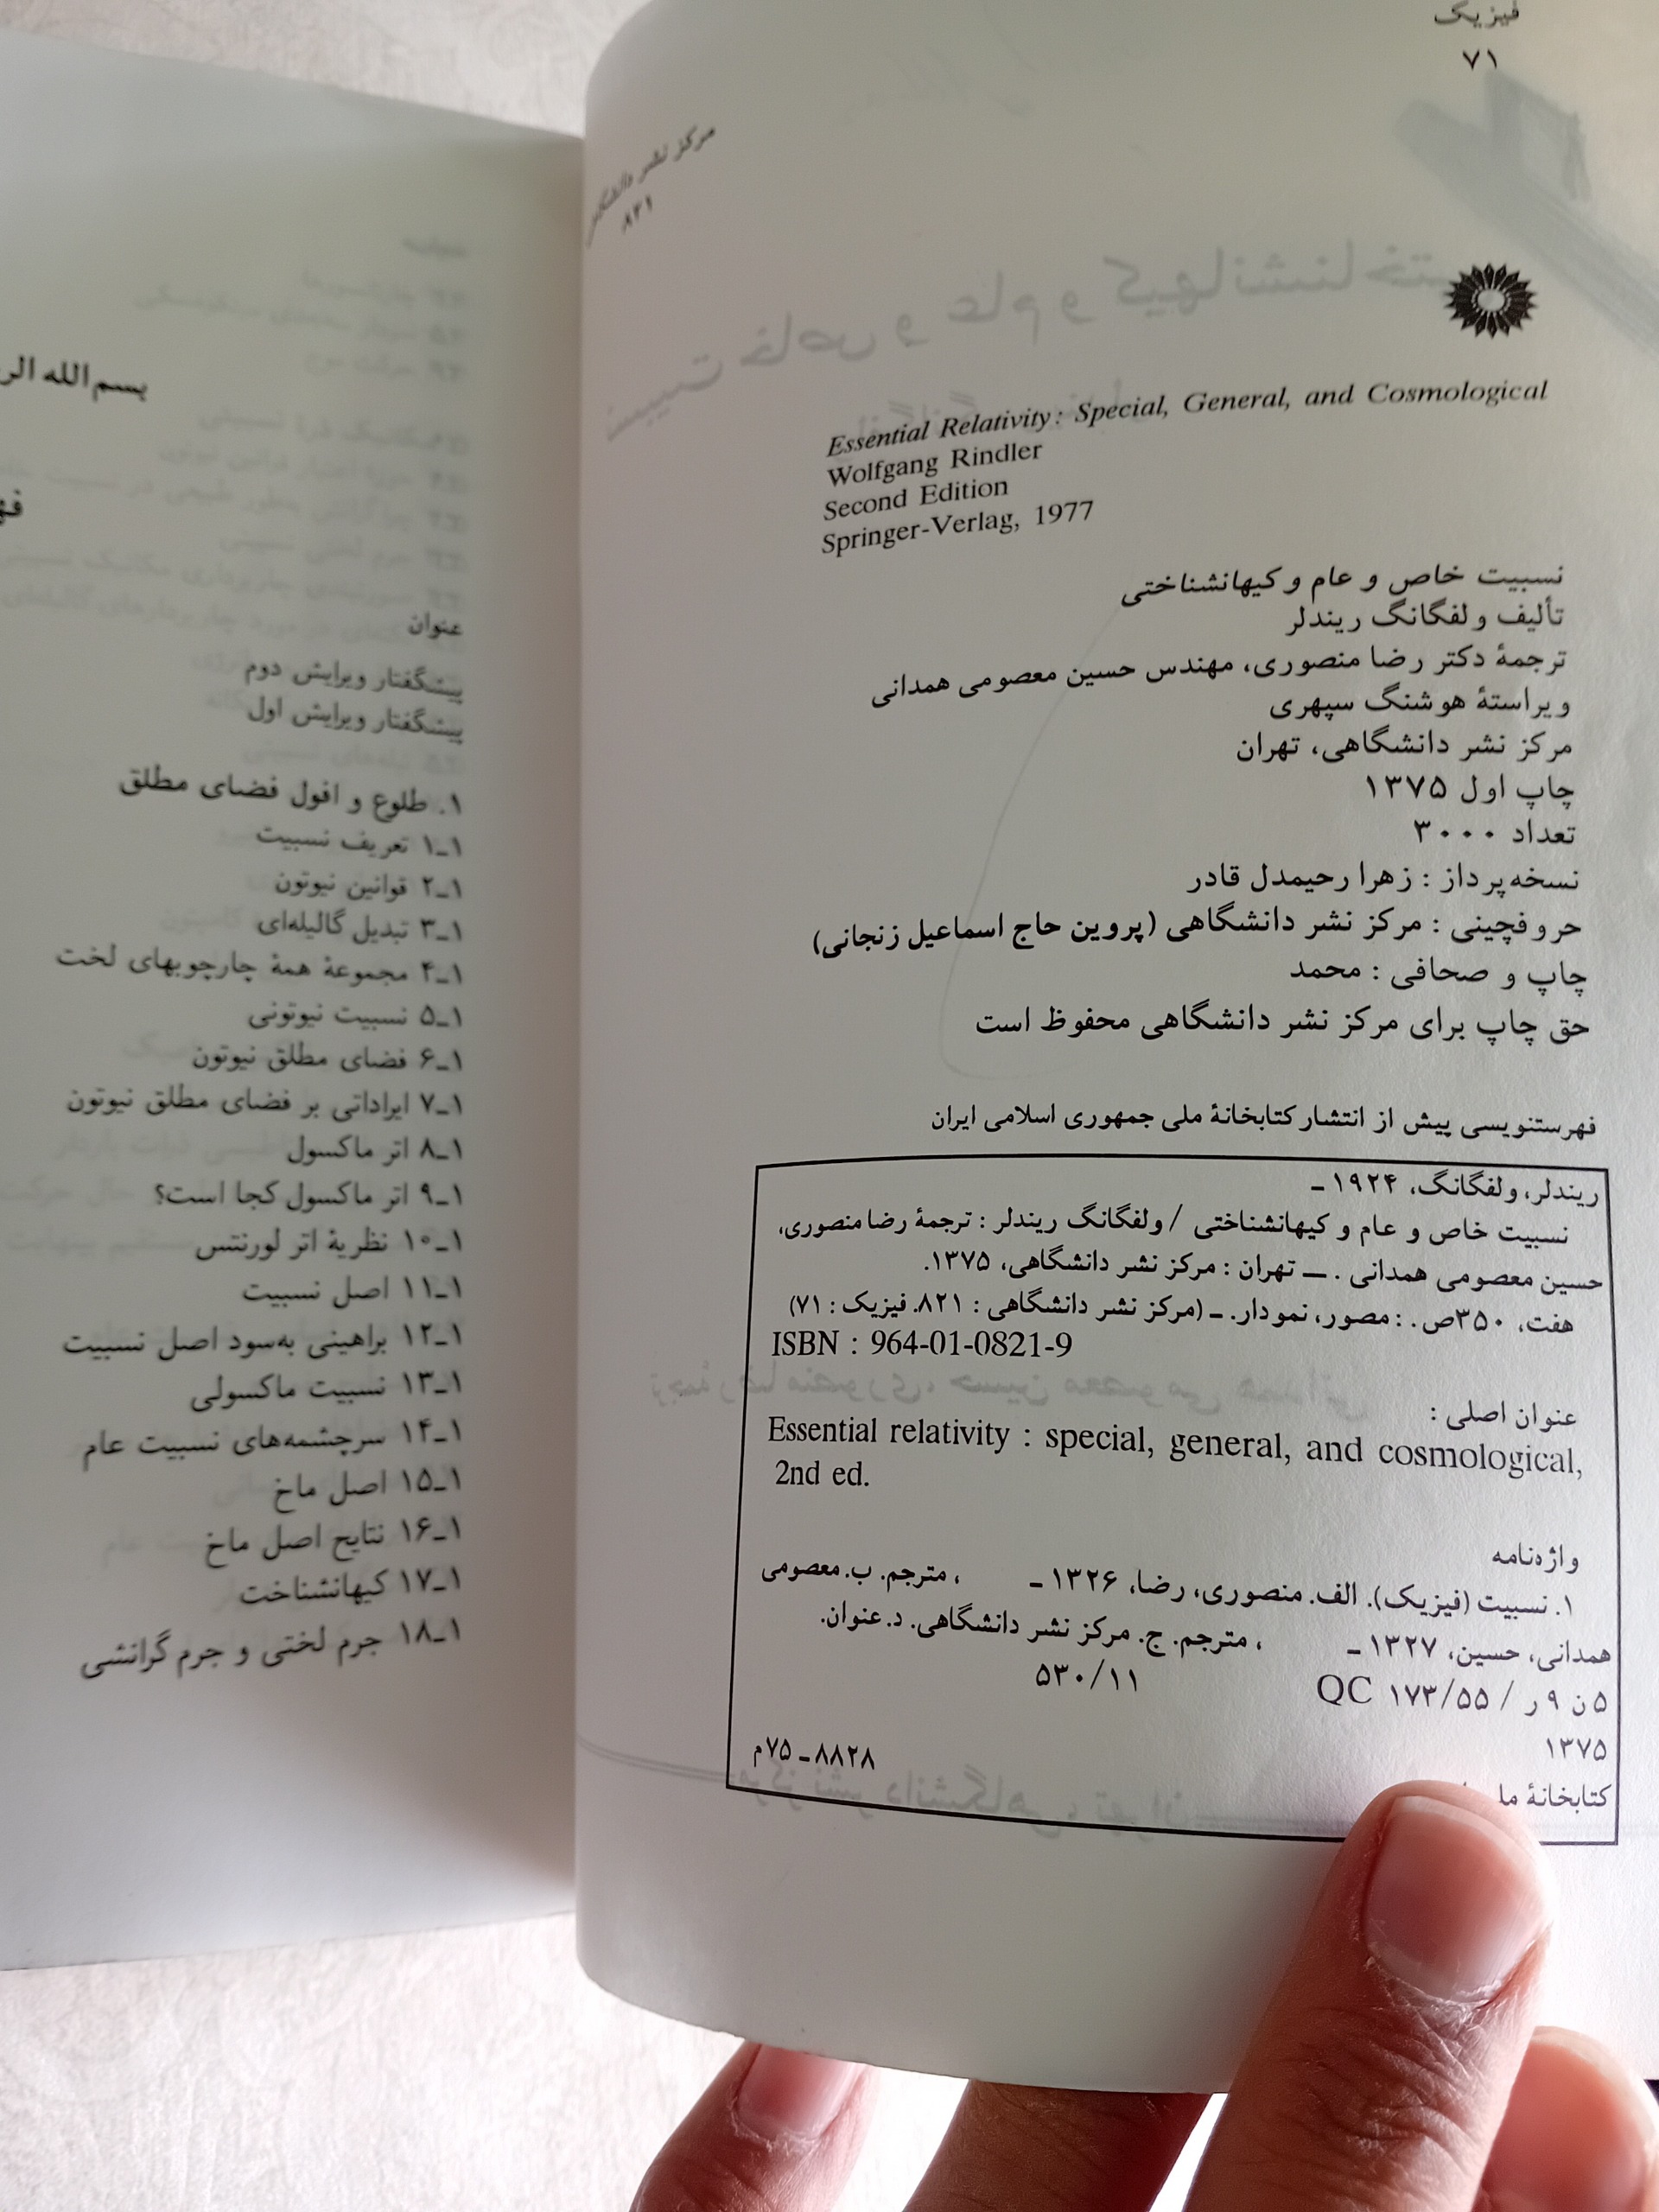 فیزیک
۷۱
مرکز نشر دانشگاهی
۸۲۱
Essential Relativity: Special, General, and Cosmological
Wolfgang Rindler
Second Edition
Springer-Verlag, 1977
نسبیت خاص و عام و کیهانشناختی
تألیف ولفگانگ ریندلر
ترجمهٔ دکتر رضا منصوری، مهندس حسین معصومی همدانی
ویراستهٔ هوشنگ سپهری
مرکز نشر دانشگاهی، تهران
چاپ اول ۱۳۷۵
تعداد ۳۰۰۰
نسخه‌پرداز : زهرا رحیمدل قادر
حروفچینی : مرکز نشر دانشگاهی (پروین حاج اسماعیل زنجانی)
چاپ و صحافی : محمد
حق چاپ برای مرکز نشر دانشگاهی محفوظ است
فهرستنویسی پیش از انتشار کتابخانهٔ ملی جمهوری اسلامی ایران
ریندلر، ولفگانگ، ۱۹۲۴ ـ
نسبیت خاص و عام و کیهانشناختی / ولفگانگ ریندلر : ترجمهٔ رضا منصوری،
حسین معصومی همدانی . ـــ تهران : مرکز نشر دانشگاهی، ۱۳۷۵.
هفت، ۳۵۰ص. : مصور، نمودار. ـ (مرکز نشر دانشگاهی : ۸۲۱. فیزیک : ۷۱)
ISBN : 964-01-0821-9
عنوان اصلی :
Essential relativity : special, general, and cosmological,
2nd ed.
واژه‌نامه
۱. نسبیت (فیزیک). الف. منصوری، رضا، ۱۳۲۶ ـ ، مترجم. ب. معصومی
همدانی، حسین، ۱۳۲۷ ـ ، مترجم. ج. مرکز نشر دانشگاهی. د. عنوان.
۵ ن ۹ ر / ۱۷۳/۵۵ QC ۵۳۰/۱۱
۱۳۷۵
۸۸۲۸ ـ ۷۵م
کتابخانهٔ
بسم‌الله
عنوان
پیشگفتار ویرایش دوم
پیشگفتار ویرایش اول
۱. طلوع و افول فضای مطلق
۱ـ۱ تعریف نسبیت
۱ـ۲ قوانین نیوتون
۱ـ۳ تبدیل گالیله‌ای
۱ـ۴ مجموعهٔ همهٔ چارچوبهای لخت
۱ـ۵ نسبیت نیوتونی
۱ـ۶ فضای مطلق نیوتون
۱ـ۷ ایراداتی بر فضای مطلق نیوتون
۱ـ۸ اتر ماکسول
۱ـ۹ اتر ماکسول کجا است؟
۱ـ۱۰ نظریهٔ اتر لورنتس
۱ـ۱۱ اصل نسبیت
۱ـ۱۲ براهینی به‌سود اصل نسبیت
۱ـ۱۳ نسبیت ماکسولی
۱ـ۱۴ سرچشمه‌های نسبیت عام
۱ـ۱۵ اصل ماخ
۱ـ۱۶ نتایج اصل ماخ
۱ـ۱۷ کیهانشناخت
۱ـ۱۸ جرم لختی و جرم گرانشی